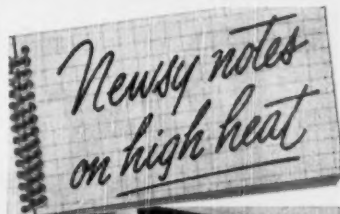 Newsy notes
on high heat